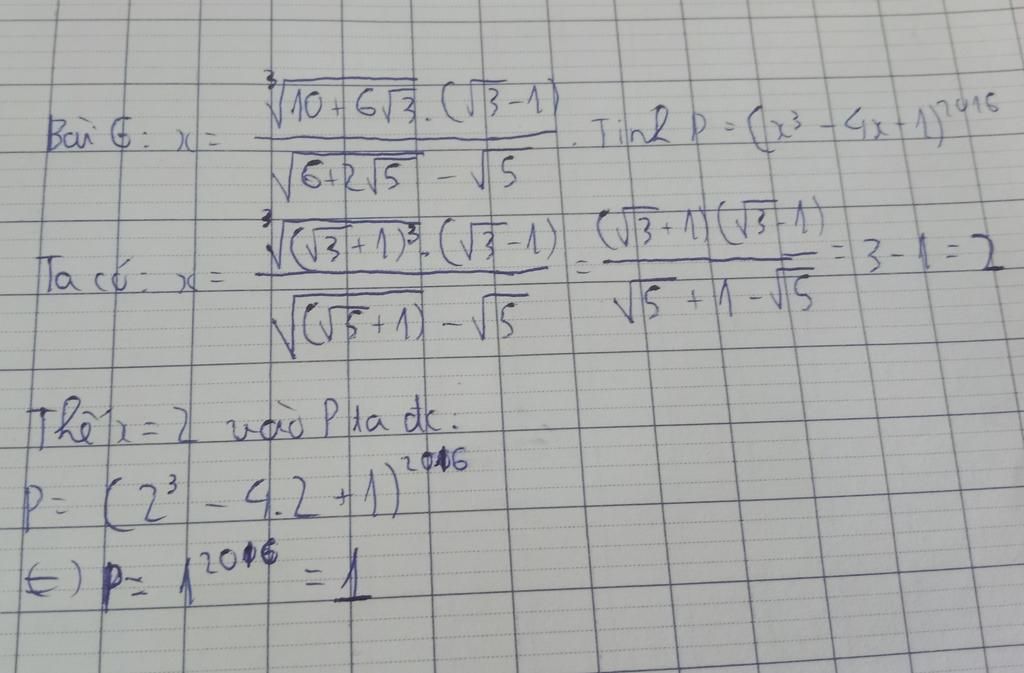 Bài 6: x = \frac{\sqrt[3]{10+6\sqrt{3}}.(\sqrt{3}-1)}{\sqrt{6+2\sqrt{5}}-\sqrt{5}}. Tính P = (x³ - 4x + 1)^{2016}
Ta có: x = \frac{\sqrt[3]{(\sqrt{3}+1)^3}.(\sqrt{3}-1)}{\sqrt{(\sqrt{5}+1)}-\sqrt{5}} = \frac{(\sqrt{3}+1)(\sqrt{3}-1)}{\sqrt{5}+1-\sqrt{5}} = 3-1 = 2
Thế x = 2 vào P ta đc:
P = (2³ - 4.2 + 1)^{2016}
(=) P = 1^{2016} = 1